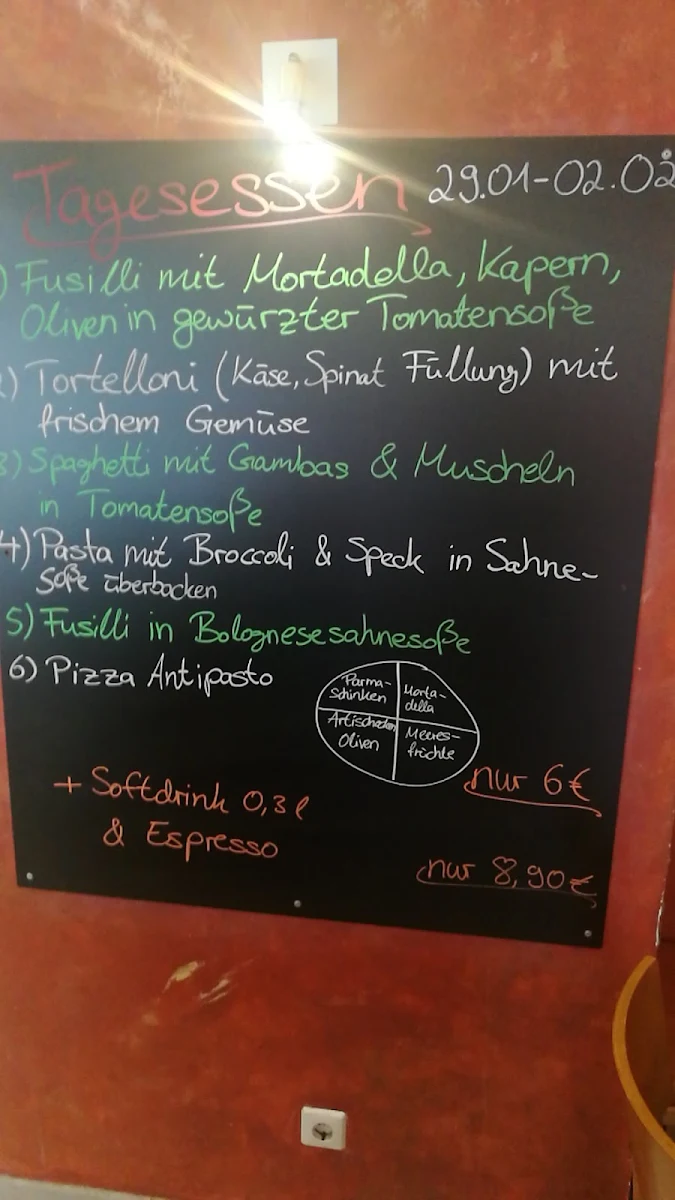 Tagesessen 29.01-02.02
) Fusilli mit Mortadella, Kapern,
Oliven in gewürzter Tomatensoße
) Tortelloni (Käse, Spinat Füllung) mit
frischem Gemüse
3) Spaghetti mit Gambas & Muscheln
in Tomatensoße
4) Pasta mit Broccoli & Speck in Sahne-
soße überbacken
5) Fusilli in Bolognesesahnesoße
6) Pizza Antipasto
Parma-
schinken
Morta-
della
Artischocken
Oliven
Meeres-
früchte
nur 6€
+ Softdrink 0,3l
& Espresso
nur 8,90€